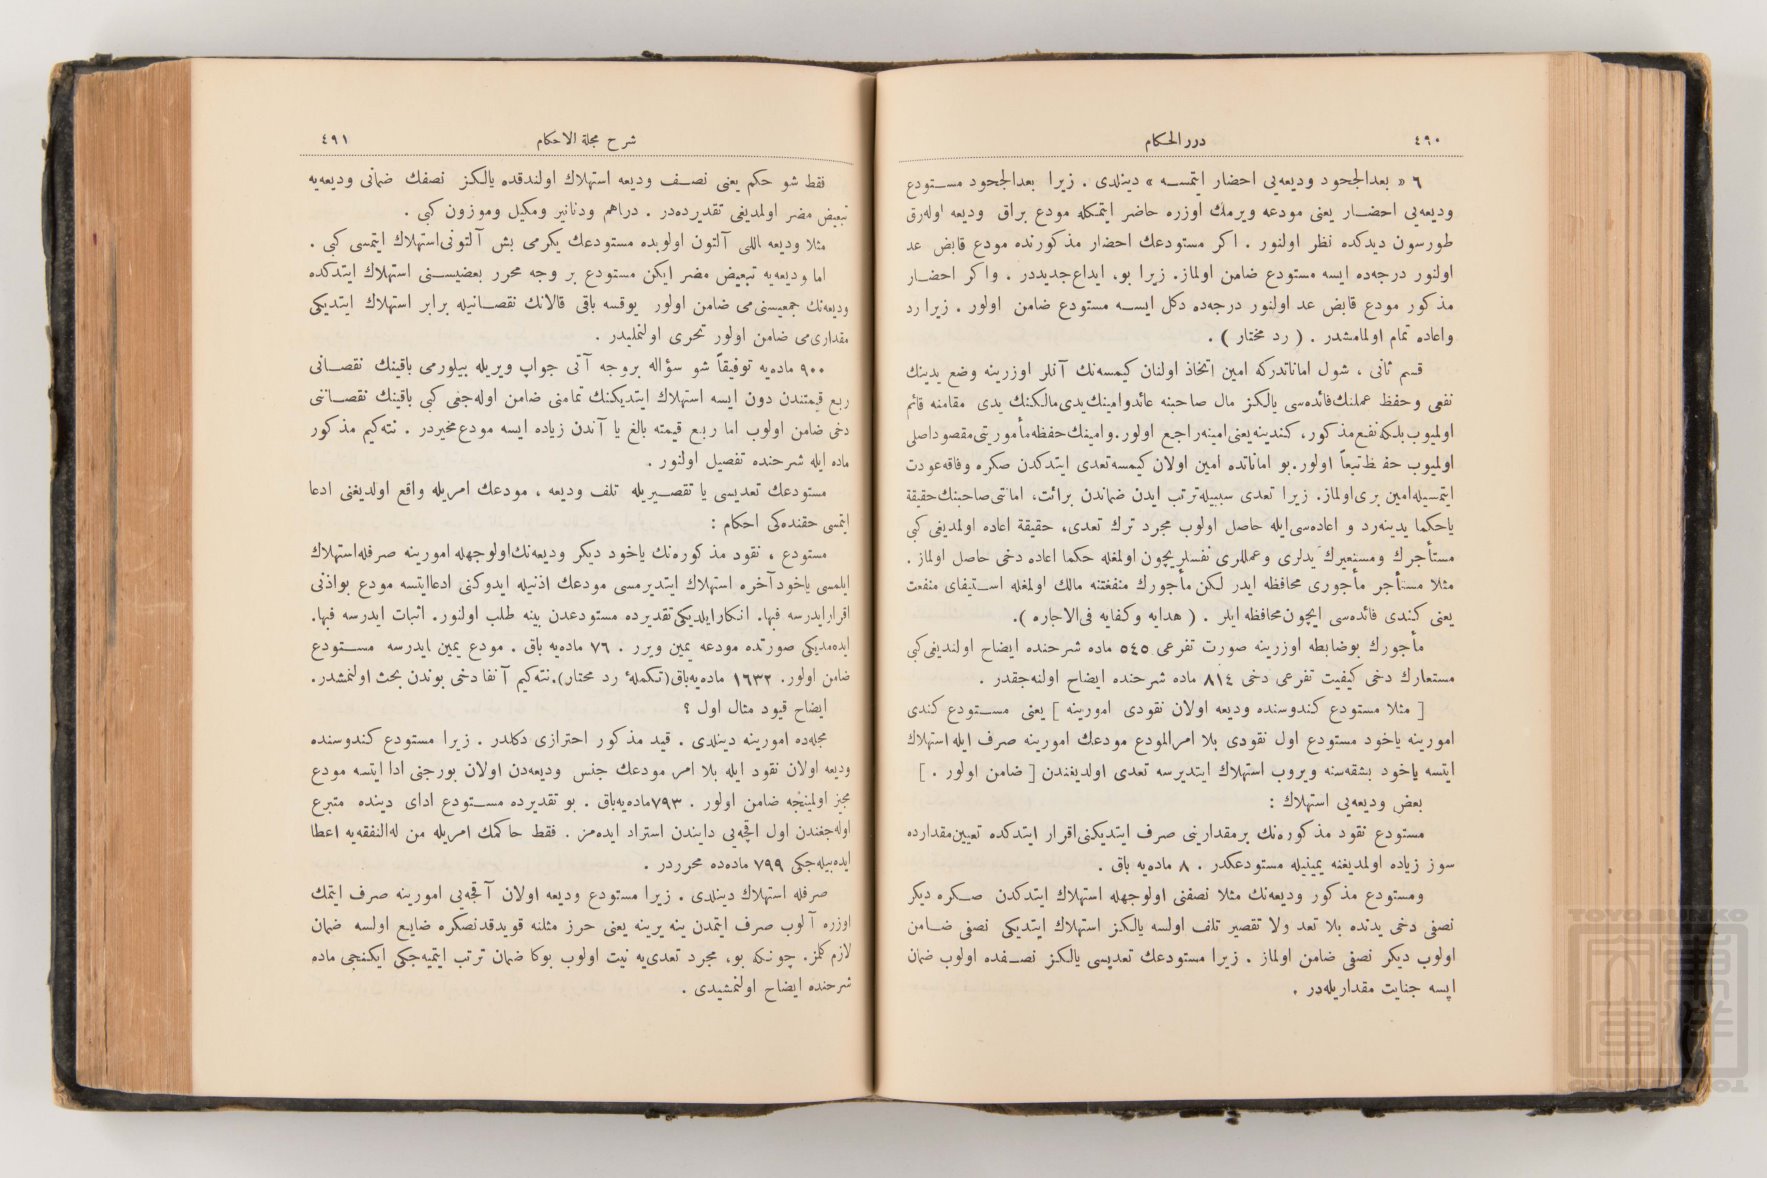 ٤٩٠
درر الحكام
٦ « بعدالجحود وديعه‌يى احضار ايتمسه » دينلدى . زيرا بعدالجحود مستودع
وديعه‌يى احضار يعنى مودعه ويرمك اوزره حاضر ايتمكله مودع براق وديعه اوله‌رق
طورسون ديدكده نظر اولنور . اكر مستودعك احضار مذكورنده مودع قابض عد
اولنور درجه‌ده ايسه مستودع ضامن اولماز. زيرا بو، ايداع جديددر . واكر احضار
مذكور مودع قابض عد اولنور درجه‌ده دكل ايسه مستودع ضامن اولور . زيرا رد
واعاده تمام اولمامشدر . ( رد مختار ) .
قسم ثانى ، شول اماناتدركه امين اتخاذ اولنان كيمسه‌نك آنلر اوزرينه وضع يدينك
نفعى وحفظ عملنك فائده‌سى يالكز مال صاحبنه عائد وامينك يدى مالكنك يدى مقامنه قائم
اولميوب بلكه نفع مذكور، كندينه يعنى امينه راجع اولور.وامينك حفظه مأموريتى مقصود اصلى
اولميوب حفظ تبعاً اولور.بو اماناتده امين اولان كيمسه تعدى ايتدكدن صكره وفاقه عودت
ايتمسيله امين برى اولماز. زيرا تعدى سببيله ترتب ايدن ضماندن برائت، امانتى صاحبنك حقيقة
ياحكما يدينه رد و اعاده‌سى ايله حاصل اولوب مجرد ترك تعدى، حقيقة اعاده اولمديغى كبى
مستأجرك ومستعيرك يدلرى وعمللرى نفسلريچون اولمغله حكما اعاده دخى حاصل اولماز .
مثلا مستأجر مأجورى محافظه ايدر لكن مأجورك منفعتنه مالك اولمغله استيفاى منفعت
يعنى كندى فائده‌سى ايچون محافظه ايلر . ( هدايه وكفايه فى‌الاجاره ).
مأجورك بوضابطه اوزرينه صورت تفرعى ٥٤٥ ماده شرحنده ايضاح اولنديغى كبى
مستعارك دخى كيفيت تفرعى دخى ٨١٤ ماده شرحنده ايضاح اولنه‌جقدر .
[ مثلا مستودع كندوسنده وديعه اولان نقودى امورينه ] يعنى مستودع كندى
امورينه ياخود مستودع اول نقودى بلا امرالمودع مودعك امورينه صرف ايله استهلاك
ايتسه ياخود بشقه‌سنه ويروب استهلاك ايتديرسه تعدى اولديغندن [ ضامن اولور . ]
بعض وديعه‌يى استهلاك :
مستودع نقود مذكوره‌نك برمقدارينى صرف ايتديكنى اقرار ايتدكده تعيين مقدارده
سوز زياده اولمديغنه يمينيله مستودعكدر . ٨ ماده‌يه باق .
ومستودع مذكور وديعه‌نك مثلا نصفنى اولوجهله استهلاك ايتدكدن صكره ديكر
نصفى دخى يدنده بلا تعد ولا تقصير تلف اولسه يالكز استهلاك ايتديكى نصفى ضامن
اولوب ديكر نصفى ضامن اولماز . زيرا مستودعك تعديسى يالكز نصفده اولوب ضمان
ايسه جنايت مقداريله‌در .
شرح مجلة الاحكام
٤٩١
فقط شو حكم يعنى نصف وديعه استهلاك اولندقده يالكز نصفك ضمانى وديعه‌يه
تبعيض مضر اولمديغى تقديرده‌در . دراهم ودنانير ومكيل وموزون كبى .
مثلا وديعه اللى آلتون اولوبده مستودعك يكرمى بش آلتونى استهلاك ايتمسى كبى .
اما وديعه‌يه تبعيض مضر ايكن مستودع بر وجه محرر بعضيسنى استهلاك ايتدكده
وديعه‌نك جمعيسنى‌مى ضامن اولور يوقسه باقى قالانك نقصانيله برابر استهلاك ايتديكى
مقدارى‌مى ضامن اولور تحرى اولنمليدر .
٩٠٠ ماده‌يه توفيقاً شو سؤاله بروجه آتى جواب ويريله بيلورمى باقينك نقصانى
ربع قيمتندن دون ايسه استهلاك ايتديكنك تمامنى ضامن اوله‌جغى كبى باقينك نقصاننى
دخى ضامن اولوب اما ربع قيمته بالغ يا آندن زياده ايسه مودع مخيردر . نته‌كيم مذكور
ماده ايله شرحنده تفصيل اولنور .
مستودعك تعديسى يا تقصيريله تلف وديعه ، مودعك امريله واقع اولديغنى ادعا
ايتمسى حقنده‌كى احكام :
مستودع ، نقود مذكوره‌نك ياخود ديكر وديعه‌نك اولوجهله امورينه صرفله استهلاك
ايلمسى ياخود آخره استهلاك ايتديرمسى مودعك اذنيله ايدوكنى ادعا ايتسه مودع بواذنى
اقرار ايدرسه فبها. انكار ايلديكى تقديرده مستودعدن بينه طلب اولنور. اثبات ايدرسه فبها.
ايده‌مديكى صورتده مودعه يمين ويرر . ٧٦ ماده‌يه باق . مودع يمين ايدرسه مستودع
ضامن اولور. ١٦٣٢ ماده‌يه باق(تكملهٔ رد محتار).نته‌كيم آنفا دخى بوندن بحث اولنمشدر.
ايضاح قيود مثال اول ؟
مجله‌ده امورينه دينلدى . قيد مذكور احترازى دكلدر . زيرا مستودع كندوسنده
وديعه اولان نقود ايله بلا امر مودعك جنس وديعه‌دن اولان بورجنى ادا ايتسه مودع
مجيز اولمينجه ضامن اولور . ٧٩٣ ماده‌يه باق . بو تقديرده مستودع اداى دينده متبرع
اوله‌جغندن اول اقچه‌يى دايندن استراد ايده‌مز . فقط حاكمك امريله من له‌النفقه‌يه اعطا
ايده‌بيله‌جكى ٧٩٩ ماده‌ده محرردر .
صرفله استهلاك دينلدى . زيرا مستودع وديعه اولان آقچه‌يى امورينه صرف ايتمك
اوزره آلوب صرف ايتمدن ينه يرينه يعنى حرز مثلنه قويدقدنصكره ضايع اولسه ضمان
لازم كلمز. چونكه بو، مجرد تعدى‌يه نيت اولوب بوكا ضمان ترتب ايتميه‌جكى ايكنجى ماده
شرحنده ايضاح اولنمشيدى .
TOYO BUNKO